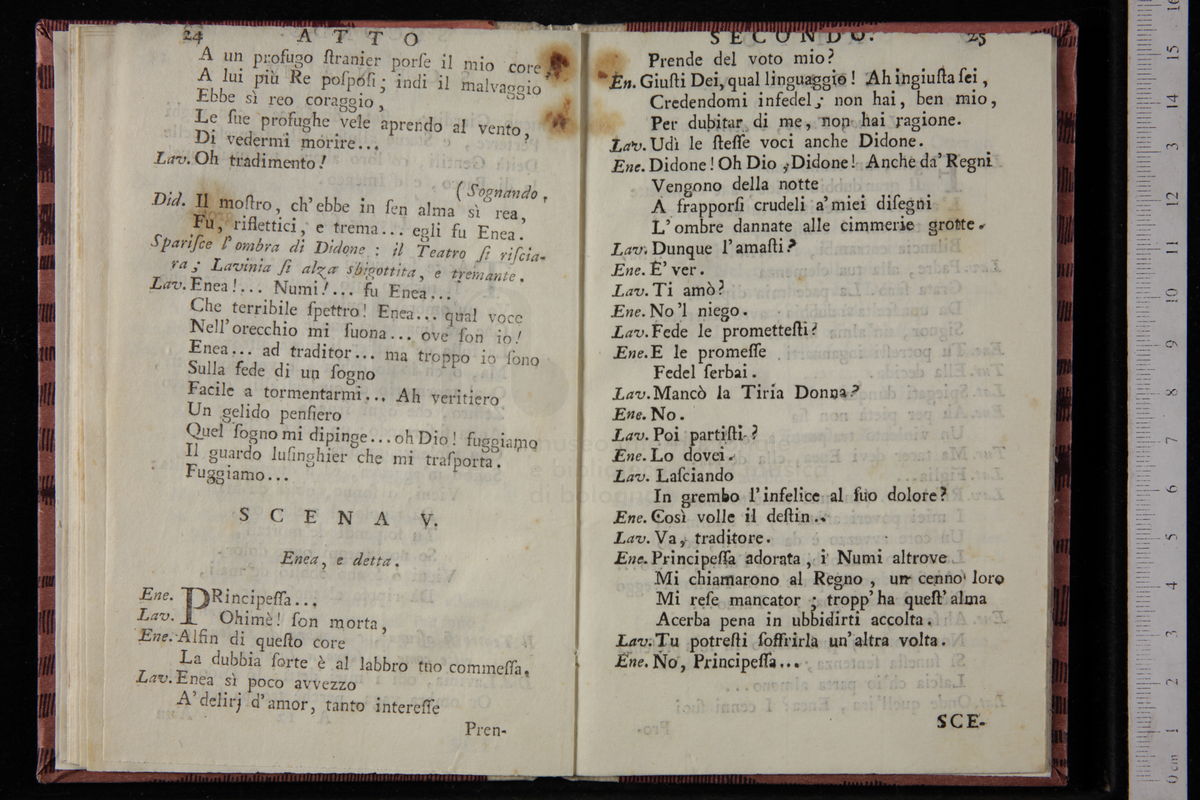 24 ATTO
A un profugo ſtranier porſe il mio core,
A lui più Re poſpoſi; indi il malvaggio
Ebbe sì reo coraggio,
Le ſue profughe vele aprendo al vento,
Di vedermi morire...
Lav. Oh tradimento!
(Sognando,
Did. Il moſtro, ch'ebbe in ſen alma sì rea,
Fu, riflettici, e trema... egli fu Enea.
Spariſce l'ombra di Didone: il Teatro ſi riſcia-
ra; Lavinia ſi alza sbigottita, e tremante.
Lav. Enea!... Numi!... fu Enea...
Che terribile ſpettro! Enea... qual voce
Nell'orecchio mi ſuona... ove ſon io!
Enea... ad traditor... ma troppo io ſono
Sulla fede di un ſogno
Facile a tormentarmi... Ah veritiero
Un gelido penſiero
Quel ſogno mi dipinge... oh Dio! fuggiamo
Il guardo luſinghier che mi traſporta.
Fuggiamo...
SCENA V.
Enea, e detta.
Ene. PRincipeſſa...
Lav. Ohimè! ſon morta,
Ene. Alfin di queſto core
La dubbia ſorte è al labbro tuo commeſſa.
Lav. Enea sì poco avvezzo
A' delirj d'amor, tanto intereſſe
Pren-
SECONDO. 25
Prende del voto mio?
En. Giuſti Dei, qual linguaggio! Ah ingiuſta ſei,
Credendomi infedel; non hai, ben mio,
Per dubitar di me, non hai ragione.
Lav. Udì le ſteſſe voci anche Didone.
Ene. Didone! Oh Dio, Didone! Anche da' Regni
Vengono della notte
A frapporſi crudeli a' miei diſegni
L'ombre dannate alle cimmerie grotte.
Lav. Dunque l'amaſti?
Ene. E' ver.
Lav. Ti amò?
Ene. No 'l niego.
Lav. Fede le prometteſti?
Ene. E le promeſſe
Fedel ſerbai.
Lav. Mancò la Tiria Donna?
Ene. No.
Lav. Poi partiſti?
Ene. Lo dovei.
Lav. Laſciando
In grembo l'infelice al ſuo dolore?
Ene. Così volle il deſtin..
Lav. Va, traditore.
Ene. Principeſſa adorata, i Numi altrove
Mi chiamarono al Regno, un cenno loro
Mi reſe mancator; tropp'ha queſt'alma
Acerba pena in ubbidirti accolta.
Lav. Tu potreſti ſoffrirla un'altra volta.
Ene. No, Principeſſa...
SCE-